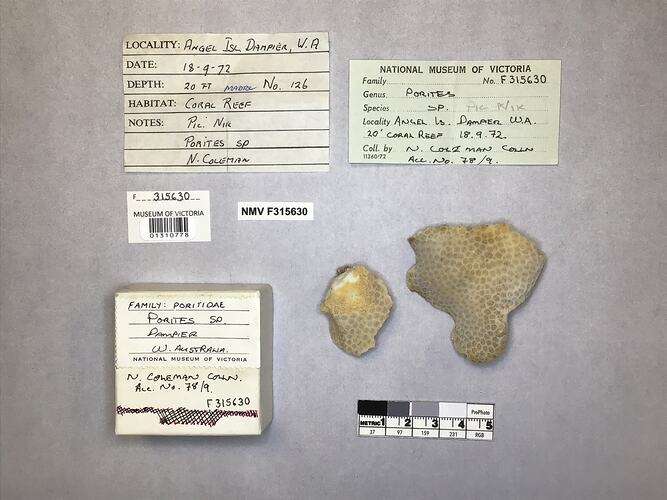 LOCALITY: ANGEL ISL DAMPIER, W.A
DATE: 18-9-72
DEPTH: 20 FT MADRE No. 126
HABITAT: CORAL REEF
NOTES: PIC. NIK
PORITES SP
N. COLEMAN
NATIONAL MUSEUM OF VICTORIA
Family No. F315630
Genus PORITES
Species SP. PIC NIK
Locality ANGEL IS. DAMPIER W.A.
20' CORAL REEF 18.9.72
Coll. by N. COLEMAN COLLN
11260/72 ACC. NO. 78/9.
F 315630
MUSEUM OF VICTORIA
01310778
NMV F315630
FAMILY: PORITIDAE
PORITES SP.
DAMPIER
W. AUSTRALIA.
NATIONAL MUSEUM OF VICTORIA
N. COLEMAN COLLN.
ACC. NO. 78/9.
F315630
ProPhoto
METRIC 1 2 3 4 5
37 97 159 231 RGB